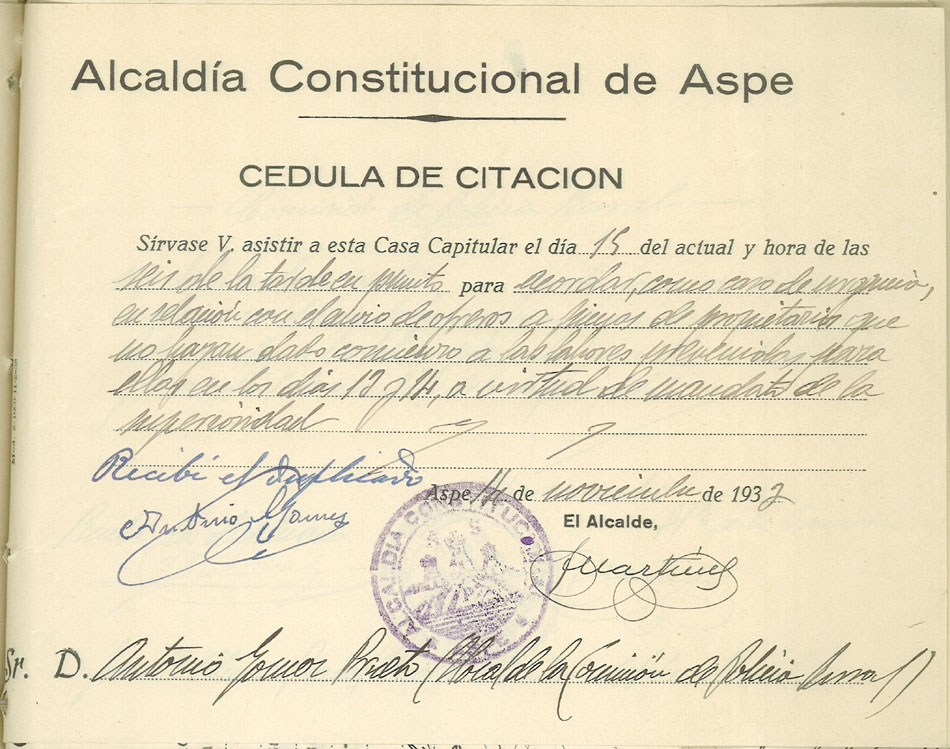 Alcaldía Constitucional de Aspe
CEDULA DE CITACION
Sírvase V. asistir a esta Casa Capitular el día 15 del actual y hora de las
seis de la tarde en punto para acordar, como caso de urgencia,
en relación con el envio de obreros a fincas de propietarios que
no hayan dado comienzo a las labores prevenidas para
ellas en los días 13 y 14, a virtud de mandato de la
superioridad
Recibí el duplicado
Aspe 14 de noviembre de 1932
Antonio Gomez
El Alcalde,
ALCALDIA CONSTITUCIONAL
ASPE
Martinez
Sr. D. Antonio Gomez Prieto (Vocal de la Comisión de Policia Rural)